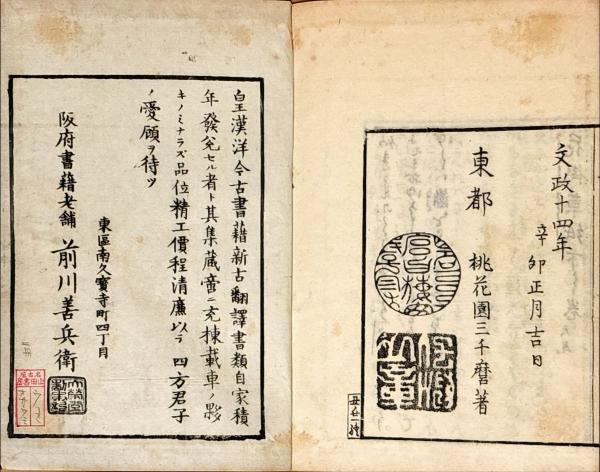 文政十四年
辛卯正月吉日
東都 桃花園三千麿著
皇漢洋今古書籍新古翻譯書類自家積
年發兌セル者ト其集蔵啻ニ充棟載車ノ夥
キノミナラズ品位精工價程清廉以テ四方君子
ノ愛顧ヲ待ツ
東區南久寳寺町四丁目
阪府書籍老舗 前川善兵衛